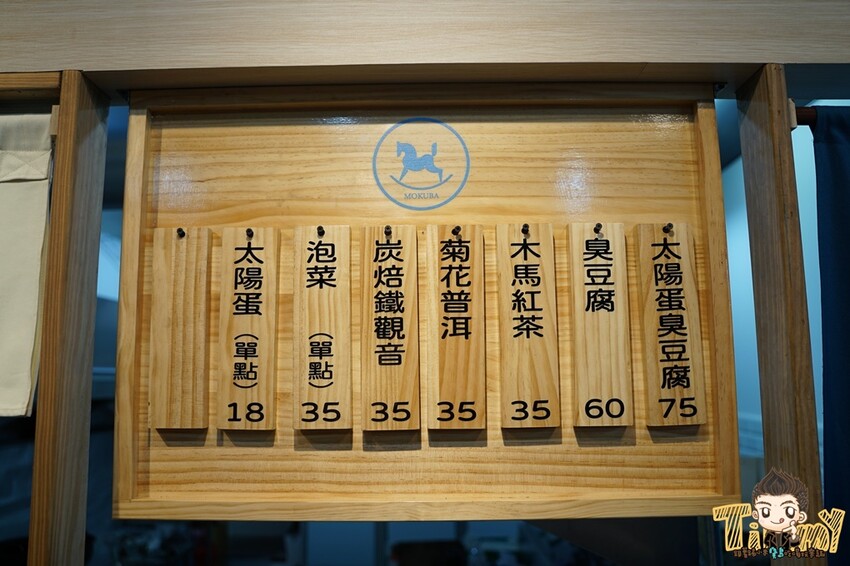 MOKUBA
太陽蛋臭豆腐 75
臭豆腐 60
木馬紅茶 35
菊花普洱 35
炭焙鐵觀音 35
泡菜（單點） 35
太陽蛋（單點） 18
TimmY